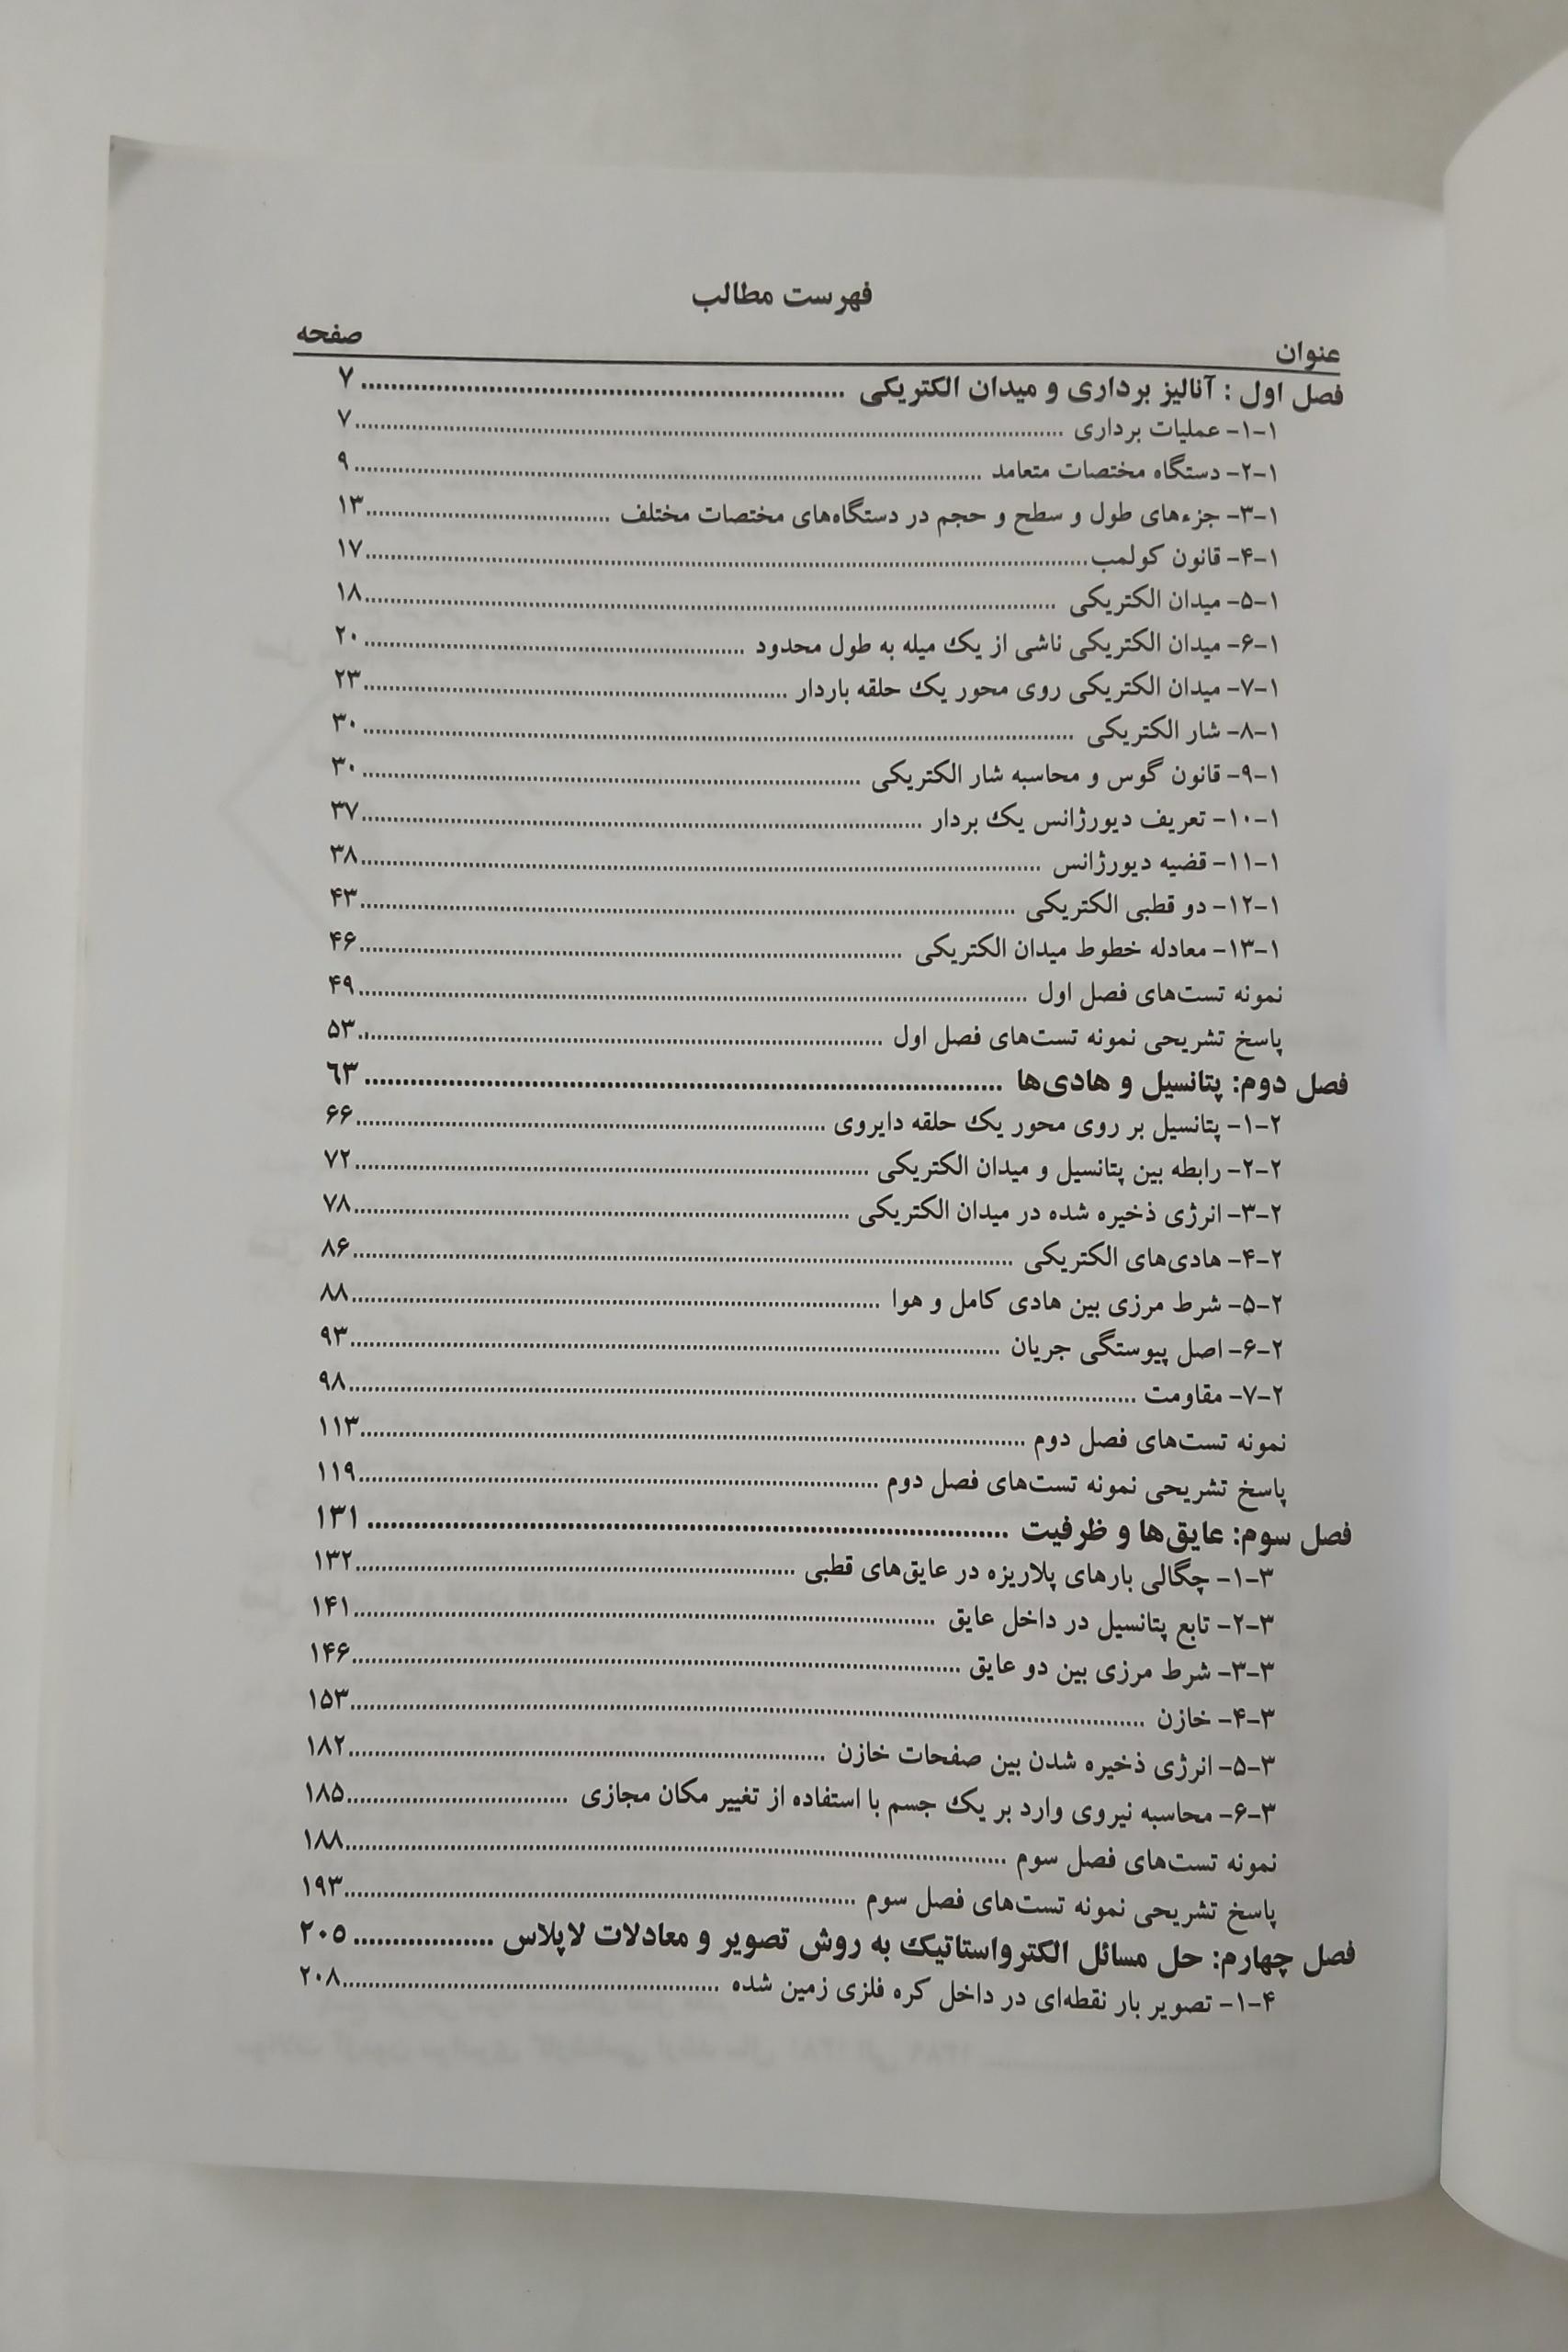 فهرست مطالب
عنوان صفحه
فصل اول : آنالیز برداری و میدان الکتریکی ........ ۷
۱-۱- عملیات برداری ........ ۷
۱-۲- دستگاه مختصات متعامد ........ ۹
۱-۳- جزءهای طول و سطح و حجم در دستگاه‌های مختصات مختلف ........ ۱۳
۱-۴- قانون کولمب ........ ۱۷
۱-۵- میدان الکتریکی ........ ۱۸
۱-۶- میدان الکتریکی ناشی از یک میله به طول محدود ........ ۲۰
۱-۷- میدان الکتریکی روی محور یک حلقه باردار ........ ۲۳
۱-۸- شار الکتریکی ........ ۳۰
۱-۹- قانون گوس و محاسبه شار الکتریکی ........ ۳۰
۱-۱۰- تعریف دیورژانس یک بردار ........ ۳۷
۱-۱۱- قضیه دیورژانس ........ ۳۸
۱-۱۲- دو قطبی الکتریکی ........ ۴۳
۱-۱۳- معادله خطوط میدان الکتریکی ........ ۴۶
نمونه تست‌های فصل اول ........ ۴۹
پاسخ تشریحی نمونه تست‌های فصل اول ........ ۵۳
فصل دوم: پتانسیل و هادی‌ها ........ ۶۳
۲-۱- پتانسیل بر روی محور یک حلقه دایروی ........ ۶۶
۲-۲- رابطه بین پتانسیل و میدان الکتریکی ........ ۷۲
۲-۳- انرژی ذخیره شده در میدان الکتریکی ........ ۷۸
۲-۴- هادی‌های الکتریکی ........ ۸۶
۲-۵- شرط مرزی بین هادی کامل و هوا ........ ۸۸
۲-۶- اصل پیوستگی جریان ........ ۹۳
۲-۷- مقاومت ........ ۹۸
نمونه تست‌های فصل دوم ........ ۱۱۳
پاسخ تشریحی نمونه تست‌های فصل دوم ........ ۱۱۹
فصل سوم: عایق‌ها و ظرفیت ........ ۱۳۱
۳-۱- چگالی بارهای پلاریزه در عایق‌های قطبی ........ ۱۳۲
۳-۲- تابع پتانسیل در داخل عایق ........ ۱۴۱
۳-۳- شرط مرزی بین دو عایق ........ ۱۴۶
۳-۴- خازن ........ ۱۵۳
۳-۵- انرژی ذخیره شدن بین صفحات خازن ........ ۱۸۲
۳-۶- محاسبه نیروی وارد بر یک جسم با استفاده از تغییر مکان مجازی ........ ۱۸۵
نمونه تست‌های فصل سوم ........ ۱۸۸
پاسخ تشریحی نمونه تست‌های فصل سوم ........ ۱۹۳
فصل چهارم: حل مسائل الکترواستاتیک به روش تصویر و معادلات لاپلاس ........ ۲۰۵
۴-۱- تصویر بار نقطه‌ای در داخل کره فلزی زمین شده ........ ۲۰۸